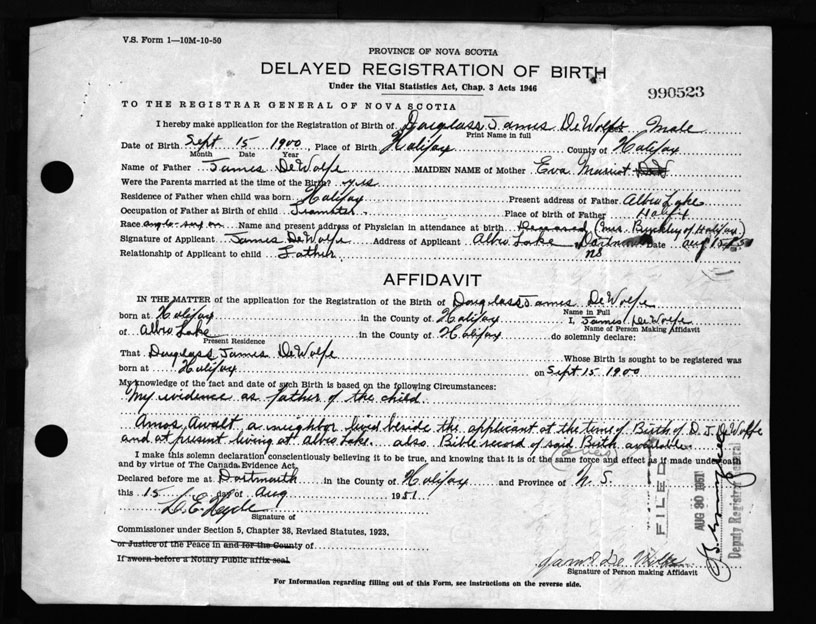 V.S. Form 1—10M-10-50
PROVINCE OF NOVA SCOTIA
DELAYED REGISTRATION OF BIRTH
Under the Vital Statistics Act, Chap. 3 Acts 1946
990523
TO THE REGISTRAR GENERAL OF NOVA SCOTIA
I hereby make application for the Registration of Birth of Douglass James DeWolfe Male
Print Name in full
Date of Birth Sept 15 1900, Place of Birth Halifax County of Halifax
Month Date Year
Name of Father James DeWolfe MAIDEN NAME of Mother Eva Marriot
Were the Parents married at the time of the Birth? yes
Residence of Father when child was born Halifax Present address of Father Albro Lake
Occupation of Father at Birth of child Teamster Place of birth of Father Halifx
Race anglo-saxon Name and present address of Physician in attendance at birth Deceased (Mrs. Buckley of Halifax)
Signature of Applicant James DeWolfe Address of Applicant Albro Lake Dartmouth Date Aug 15
Relationship of Applicant to child Father NS
AFFIDAVIT
IN THE MATTER of the application for the Registration of the Birth of Douglass James DeWolfe
Name in Full
born at Halifax in the County of Halifax I, James DeWolfe
Name of Person Making Affidavit
of Albro Lake in the County of Halifax do solemnly declare:
Present Residence
That Douglass James DeWolfe Whose Birth is sought to be registered was
born at Halifax on Sept 15 1900
My knowledge of the fact and date of such Birth is based on the following Circumstances:
My evidence as father of the child.
Amos Awalt a neighbor lived beside the applicant at the time of Birth of D. J. DeWolfe
and at present living at Albro Lake. also Bible record of said Birth available.
I make this solemn declaration conscientiously believing it to be true, and knowing that it is of the same force and effect as if made under oath
and by virtue of The Canada Evidence Act.
Declared before me at Dartmouth in the County of Halifax and Province of N.S.
this 15 day of Aug 1951
Signature of
Commissioner under Section 5, Chapter 38, Revised Statutes, 1923,
or Justice of the Peace in and for the County of
If sworn before a Notary Public affix seal
FILED
AUG 30 1951
Deputy Registrar General
James De Wolfe
Signature of Person making Affidavit
For Information regarding filling out of this Form, see instructions on the reverse side.